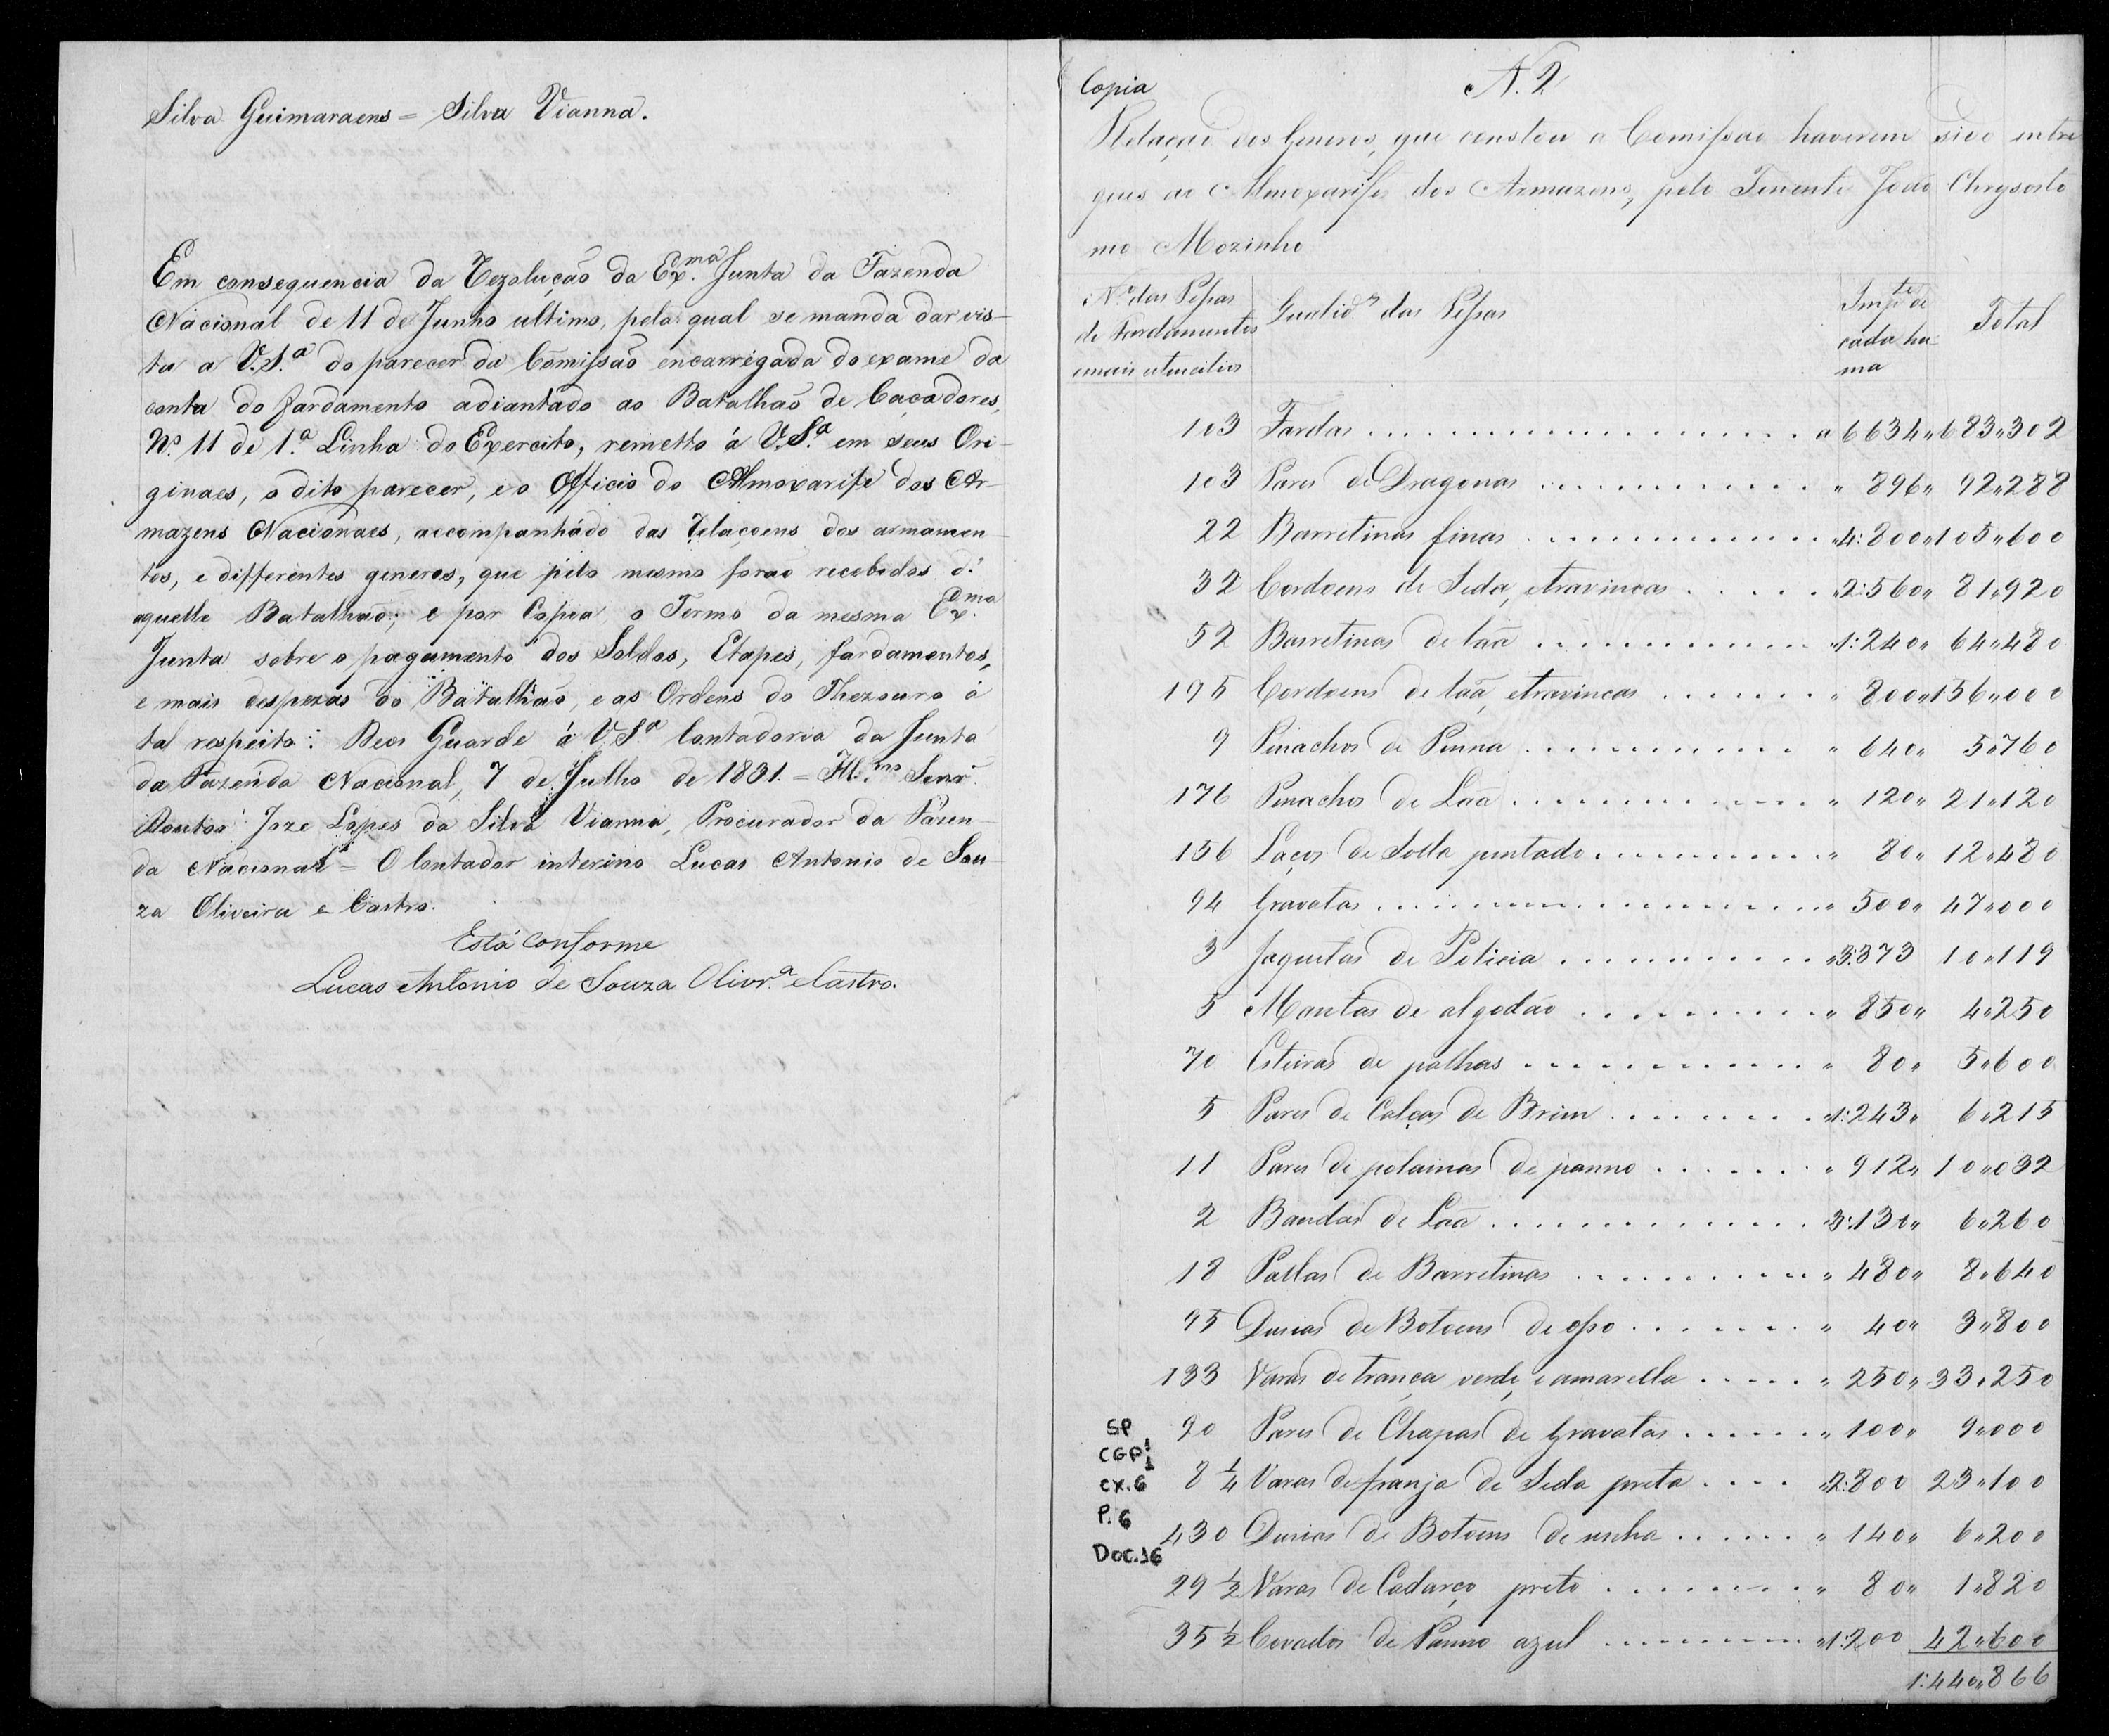 Silva Guimaraens = Silva Vianna.
Em consequencia da Rezolução da Ex.ma Junta da Fazenda
Nacional de 11 de Junho ultimo, pela qual se manda dar vis-
ta a V.S.ª do parecer da Comissão encarregada do exame da
conta do fardamento adiantado ao Batalhão de Caçadores,
N.º 11 de 1.ª Linha do Exercito, remetto á V.S.ª em seus Ori-
ginaes, o dito parecer, e o Officio do Almoxarife dos Ar-
mazens Nacionaes, accompanhádo das Relaçoens dos armamen-
tos, e differentes generos, que pelo mesmo forão recebidos d'
aquelle Batalhão; e por Copea, o Termo da mesma Ex.ma
Junta sobre o pagamento dos Soldos, Etapes, fardamentos,
e mais despezas do Batalhão, e as Ordens do Thezouro á
tal respeito: Deos Guarde á V.S.ª Contadoria da Junta
da Fazenda Nacional, 7 de Julho de 1831. = Ill.mo Senr.
Doutor Joze Lopes da Silva Vianna, Procurador da Fazen-
da Nacional = O Contador interino Lucas Antonio de Sou-
za Oliveira e Castro.
Está conforme
Lucas Antonio de Souza Olivr.ª e Castro.
Copia N. 2
Relação dos Generos, que constou a Comissão haverem sido entre
gues ao Almoxarife dos Armazens, pelo Tenente João Chrysosto
mo Mozinho
N.º das Pessas
de Fardamentos
e mais utencilios
Qualid.es das Pessas
Imp.te de
cada hu-
ma
Total
103 Fardas ........ a 6634 " 683 " 302
103 Pares de Dragonas ........ " 896 " 92 " 288
22 Barretinas finas ........ " 4:800 " 105 " 600
32 Cordoens de Seda, etravincas ........ " 2:560 " 81 " 920
52 Barretinas de laã ........ " 1:240 " 64 " 480
195 Cordoens de laã, etravincas ........ " 800 " 156 " 000
9 Penachos de Penna ........ " 640 " 5 " 760
176 Penachos de Laã ........ " 120 " 21 " 120
156 Laços de Solla pintado ........ " 80 " 12 " 480
94 Gravatas ........ " 500 " 47 " 000
3 Jaquetas de Policia ........ " 3:373 10 " 119
5 Mantas de algodão ........ " 850 " 4 " 250
70 Esteiras de palhas ........ " 80 " 5 " 600
5 Pares de Calças de Brim ........ " 1:243 " 6 " 215
11 Pares de polainas de panno ........ " 912 " 10 " 032
2 Bandas de Laã ........ " 3:130 " 6 " 260
18 Pallas de Barretinas ........ " 480 " 8 " 640
95 Duzias de Botoens de osso ........ " 40 " 3 " 800
133 Varas de trança verde, e amarella ........ " 250 " 33 " 250
90 Pares de Chapas de Gravatas ........ " 100 " 9 " 000
8 1/4 Varas de franja de Seda preta ........ " 2:800 23 " 100
430 Duzias de Botoens de unha ........ " 140 " 6 " 200
29 1/2 Varas de Cadarço preto ........ " 80 " 1 " 820
35 1/2 Covados de Panno azul ........ " 1:200 42 " 600
1:440 " 866
SP
CGP1
cx.6
P.6
Doc.16